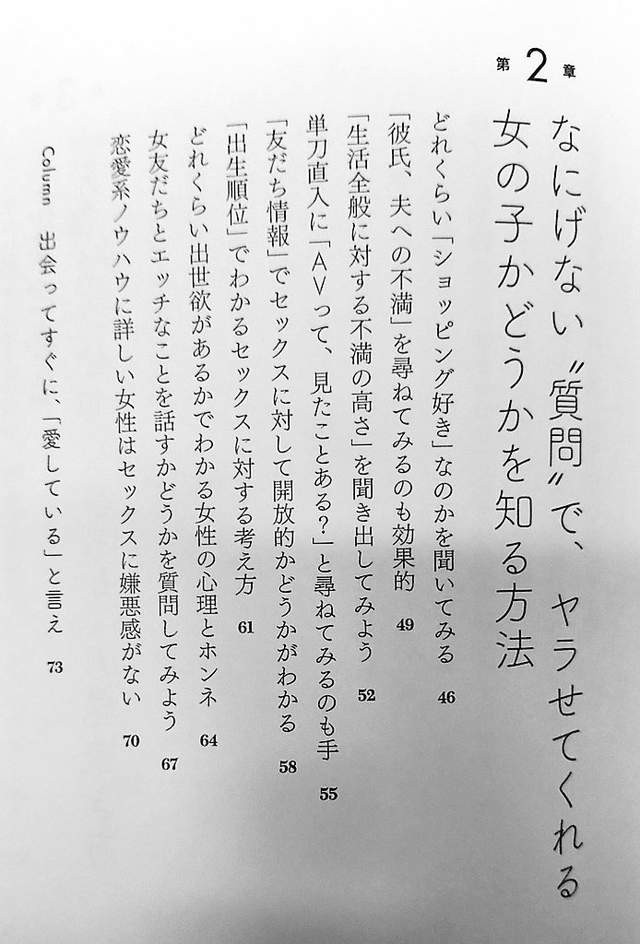 第2章
なにげない“質問”で、ヤラせてくれる
女の子かどうかを知る方法
どれくらい「ショッピング好き」なのかを聞いてみる 46
「彼氏、夫への不満」を尋ねてみるのも効果的 49
「生活全般に対する不満の高さ」を聞き出してみよう 52
単刀直入に「AVって、見たことある?」と尋ねてみるのも手 55
「友だち情報」でセックスに対して開放的かどうかがわかる 58
「出生順位」でわかるセックスに対する考え方 61
どれくらい出世欲があるかでわかる女性の心理とホンネ 64
女友だちとエッチなことを話すかどうかを質問してみよう 67
恋愛系ノウハウに詳しい女性はセックスに嫌悪感がない 70
Column 出会ってすぐに、「愛している」と言え 73